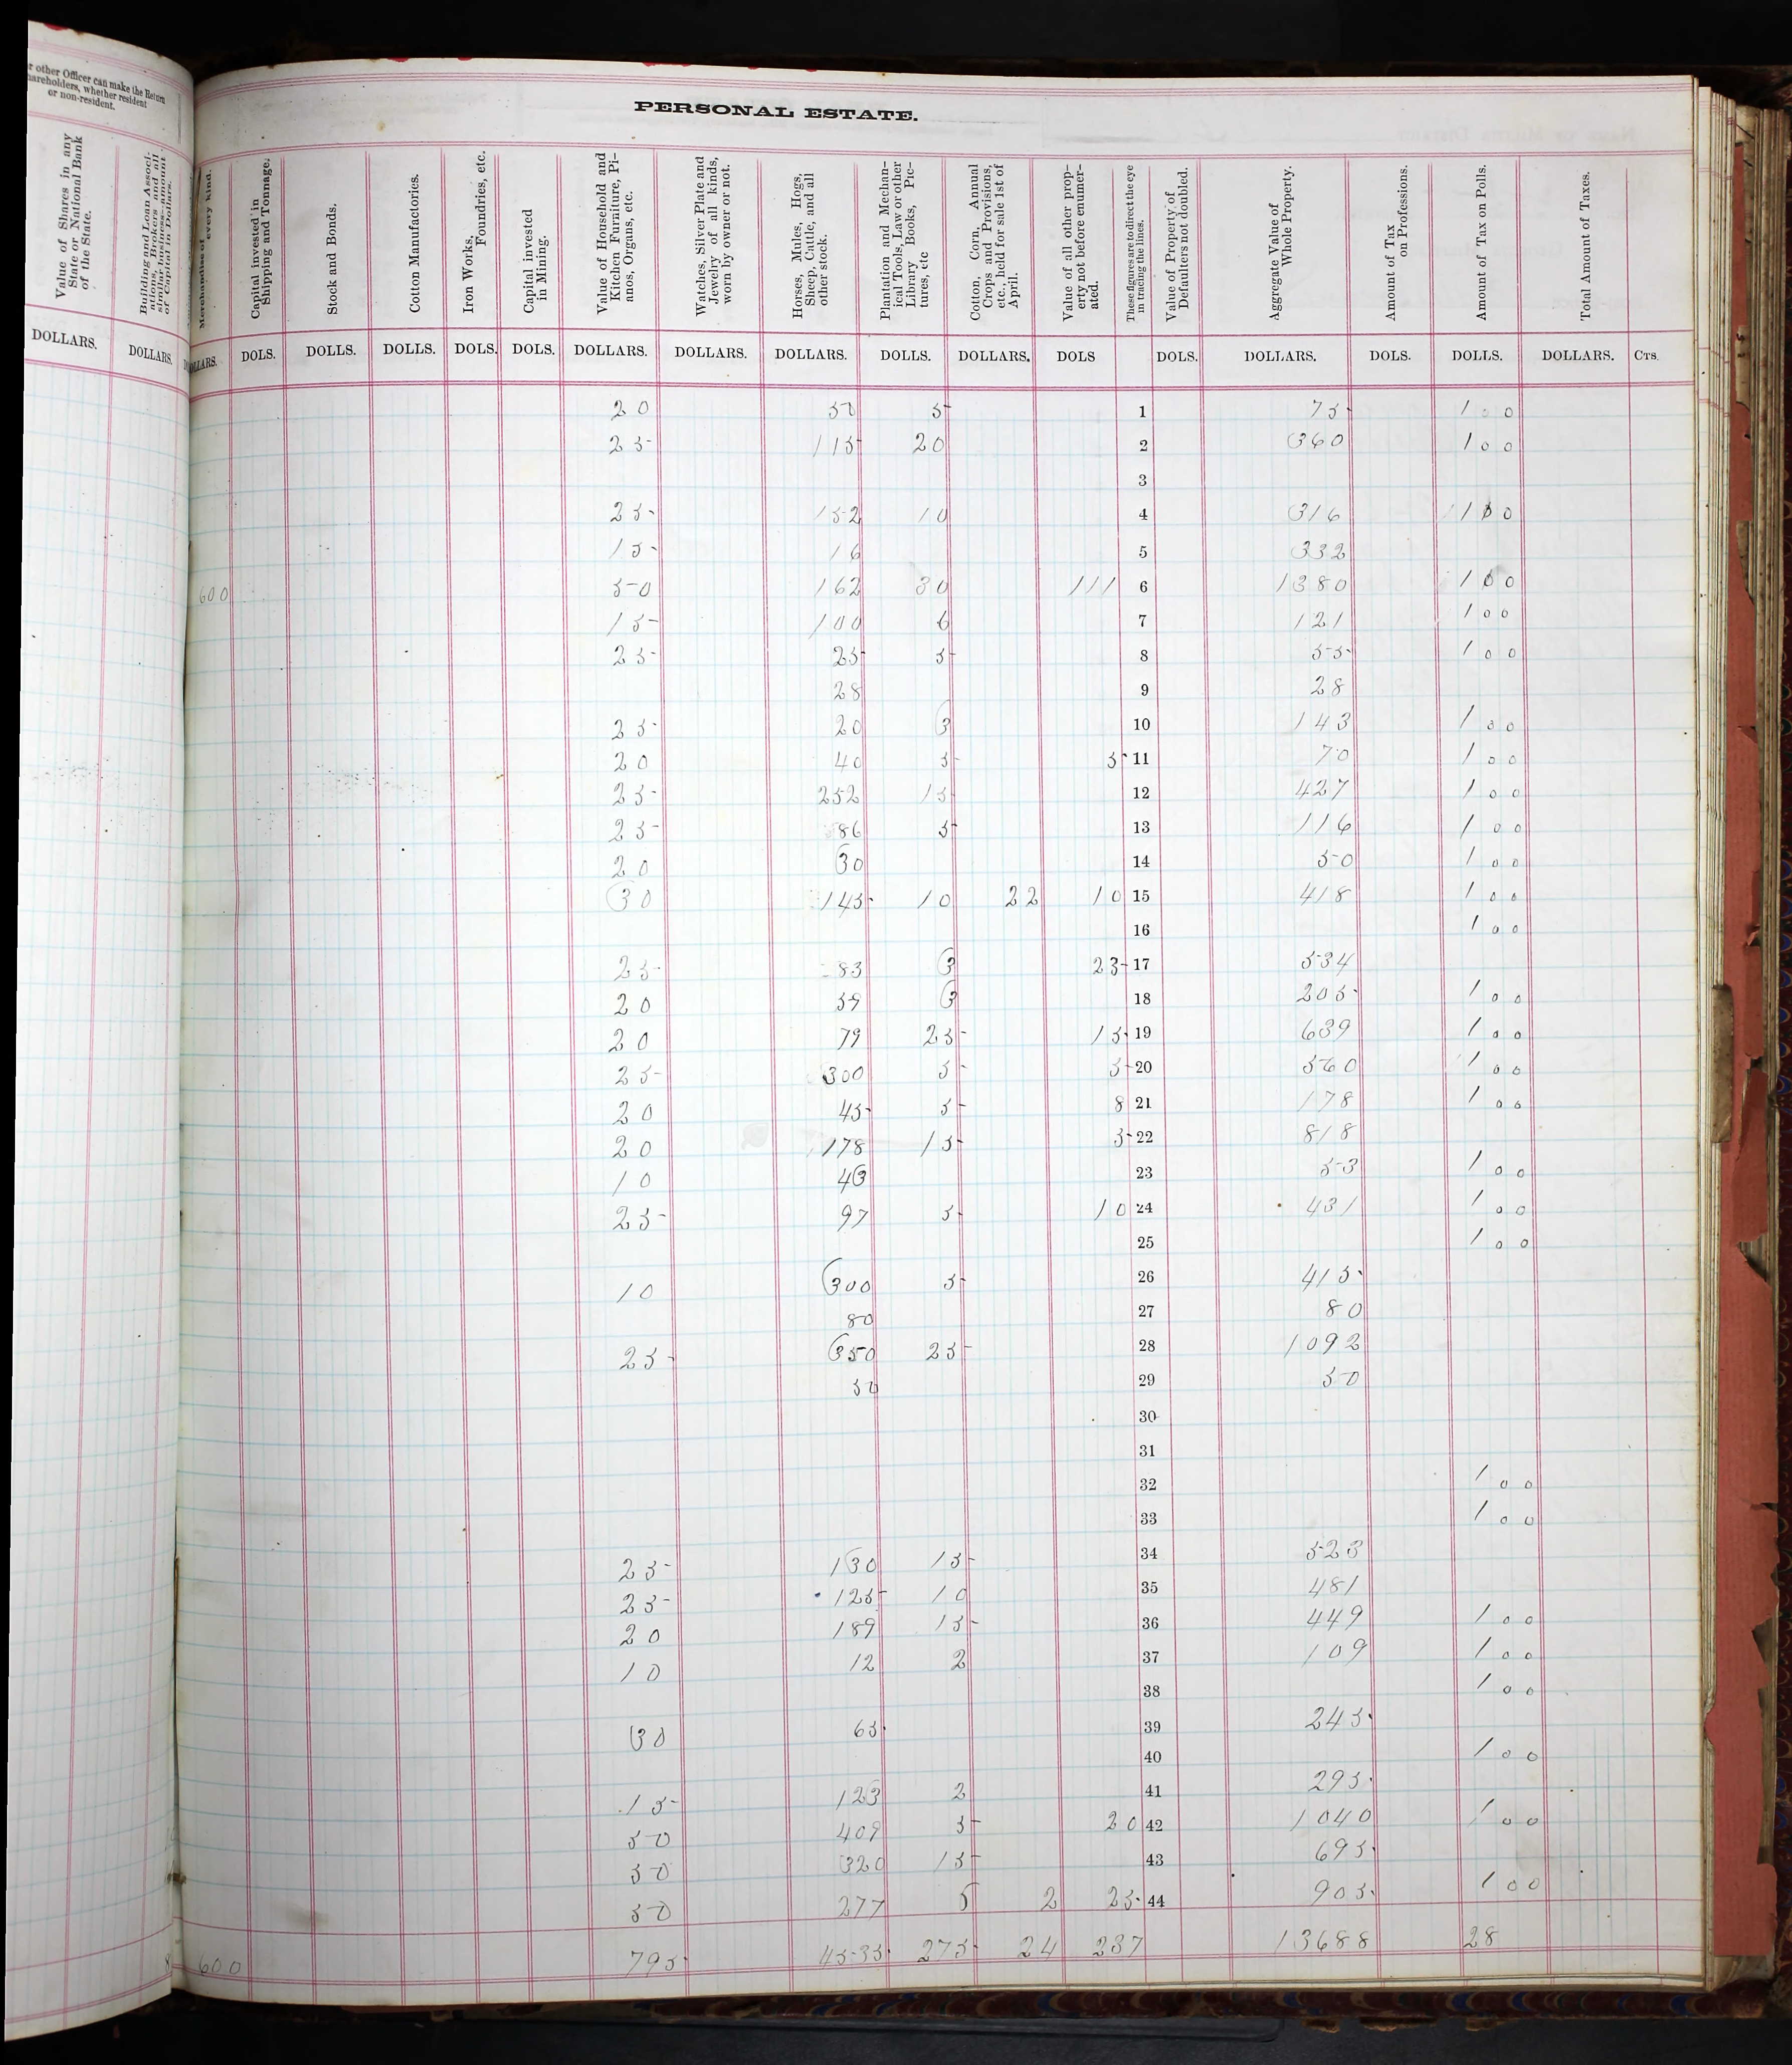 r other Officer can make the Return
hareholders, whether resident
or non-resident.
PERSONAL ESTATE.
Value of Shares in any State or National Bank of the State.
Building and Loan Associations, Brokers and all similar business—amount of Capital in Dollars.
Merchandise of every kind.
Capital invested in Shipping and Tonnage.
Stock and Bonds.
Cotton Manufactories.
Iron Works, Foundries, etc.
Capital invested in Mining.
Value of Household and Kitchen Furniture, Pianos, Organs, etc.
Watches, Silver Plate and Jewelry of all kinds, worn by owner or not.
Horses, Mules, Hogs, Sheep, Cattle, and all other stock.
Plantation and Mechanical Tools, Law or other Library Books, Pictures, etc
Cotton, Corn, Annual Crops and Provisions, etc., held for sale 1st of April.
Value of all other property not before enumerated.
These figures are to direct the eye in tracing the lines.
Value of Property of Defaulters not doubled.
Aggregate Value of Whole Property.
Amount of Tax on Professions.
Amount of Tax on Polls.
Total Amount of Taxes.
DOLLARS. DOLLARS. DOLLARS. DOLS. DOLLS. DOLLS. DOLS. DOLS. DOLLARS. DOLLARS. DOLLARS. DOLLS. DOLLARS. DOLS DOLS. DOLLARS. DOLS. DOLLS. DOLLARS. Cts.
20 50 5 1 75 100
25 115 20 2 360 100
3
25 152 10 4 316 100
15 16 5 332
600 50 162 30 111 6 1380 100
15 100 6 7 121 100
25 25 5 8 55 100
28 9 28
25 20 3 10 143 100
20 40 5 5 11 70 100
25 252 15 12 427 100
25 86 5 13 116 100
20 30 14 50 100
30 145 10 22 10 15 418 100
16 100
25 83 3 23 17 534
20 59 3 18 205 100
20 79 25 15 19 639 100
25 300 5 5 20 560 100
20 45 5 8 21 178 100
20 178 15 5 22 818
10 43 23 53 100
25 97 5 10 24 431 100
25 100
10 300 5 26 415
80 27 80
25 350 25 28 1092
50 29 50
30
31
32 100
33 100
25 130 15 34 523
25 125 10 35 481
20 189 15 36 449 100
10 12 2 37 109 100
38 100
30 65 39 245
40 100
15 123 2 41 295
50 409 5 20 42 1040 100
50 320 15 43 695
50 277 5 2 25 44 905 100
600 795 4535 275 24 237 13688 28